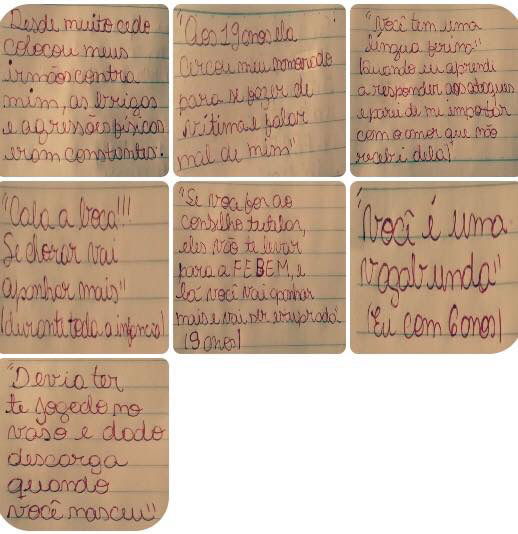 Desde muito cedo
colocou meus
irmãos contra
mim, as brigas
e agressões físicas
eram constantes.
"Aos 19 anos ela
cercou meu namorado
para se fazer de
vítima e falar
mal de mim"
"Você tem uma
língua ferina"
(quando eu aprendi
a responder aos ataques
e parei de me importar
com o amor que não
recebi dela)
"Cala a boca!!!
Se chorar vai
apanhar mais"
(durante toda a infância)
"Se você for ao
conselho tutelar,
eles vão te levar
para a FEBEM, e
lá você vai apanhar
mais e vai ser estuprada"
(9 anos)
"Você é uma
vagabunda"
(Eu com 6 anos)
"Devia ter
te jogado no
vaso e dado
descarga
quando
você nasceu"